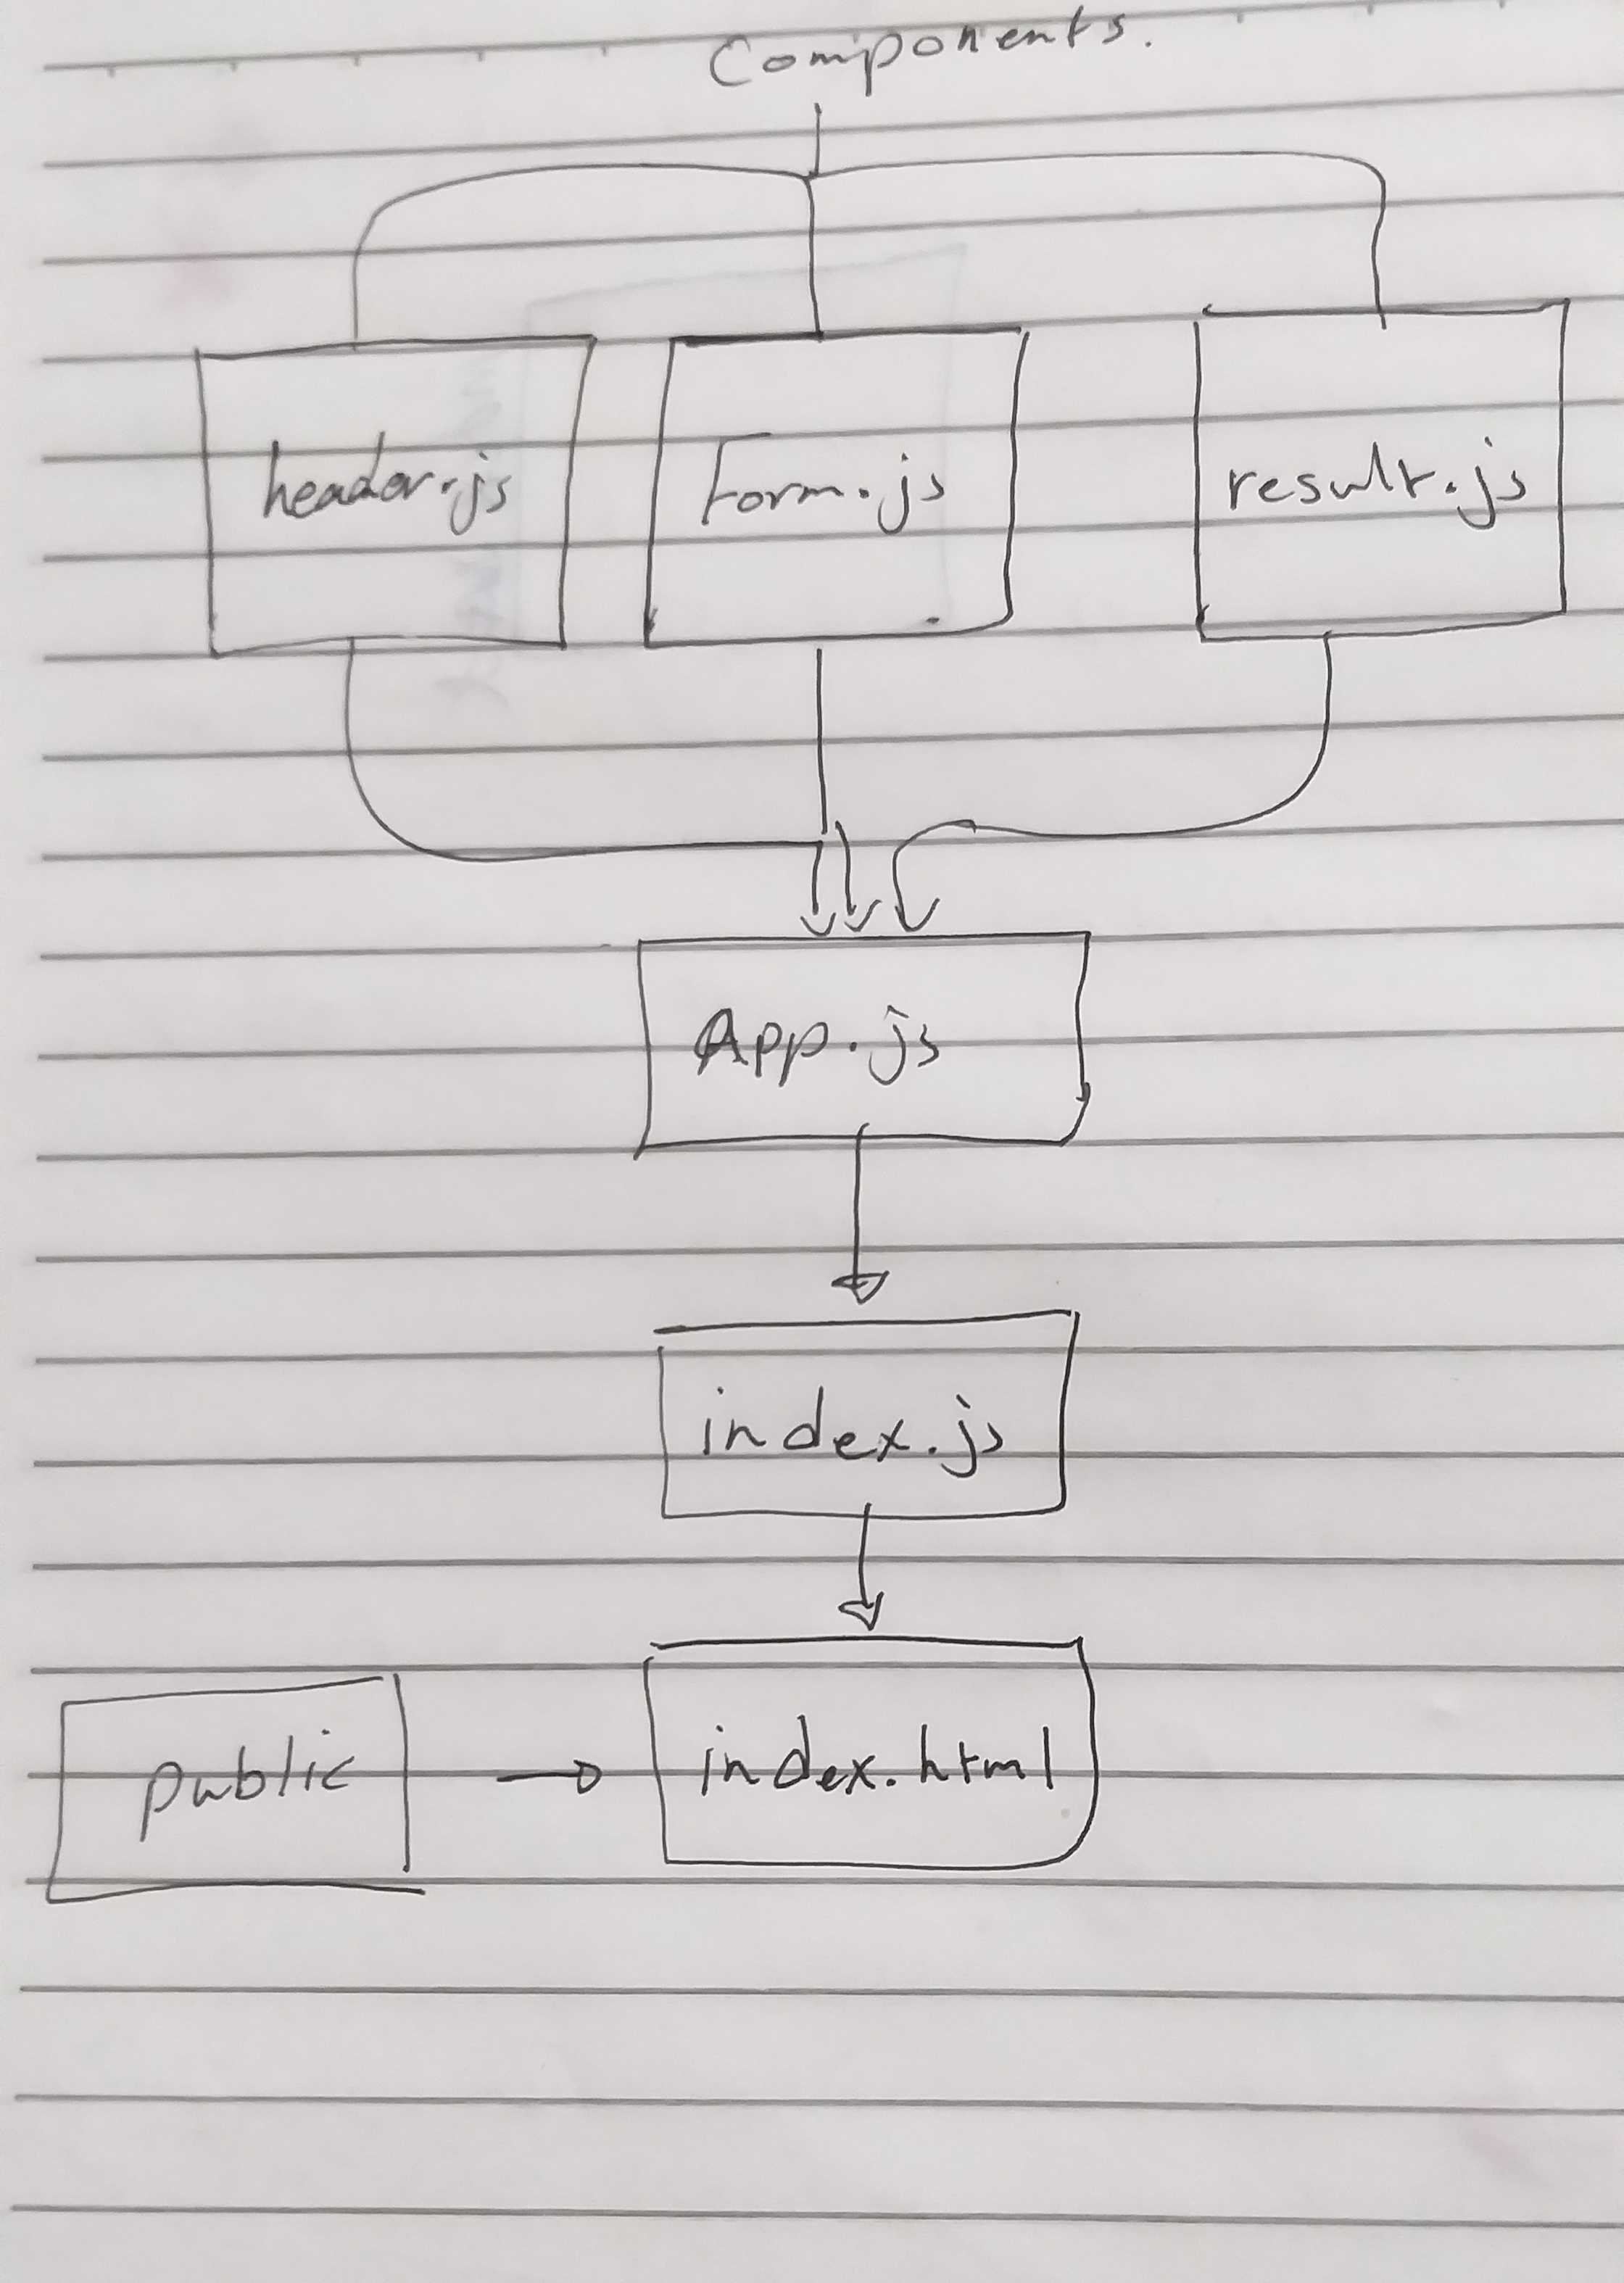 Components.
header.js
Form.js
result.js
App.js
index.js
public
index.html